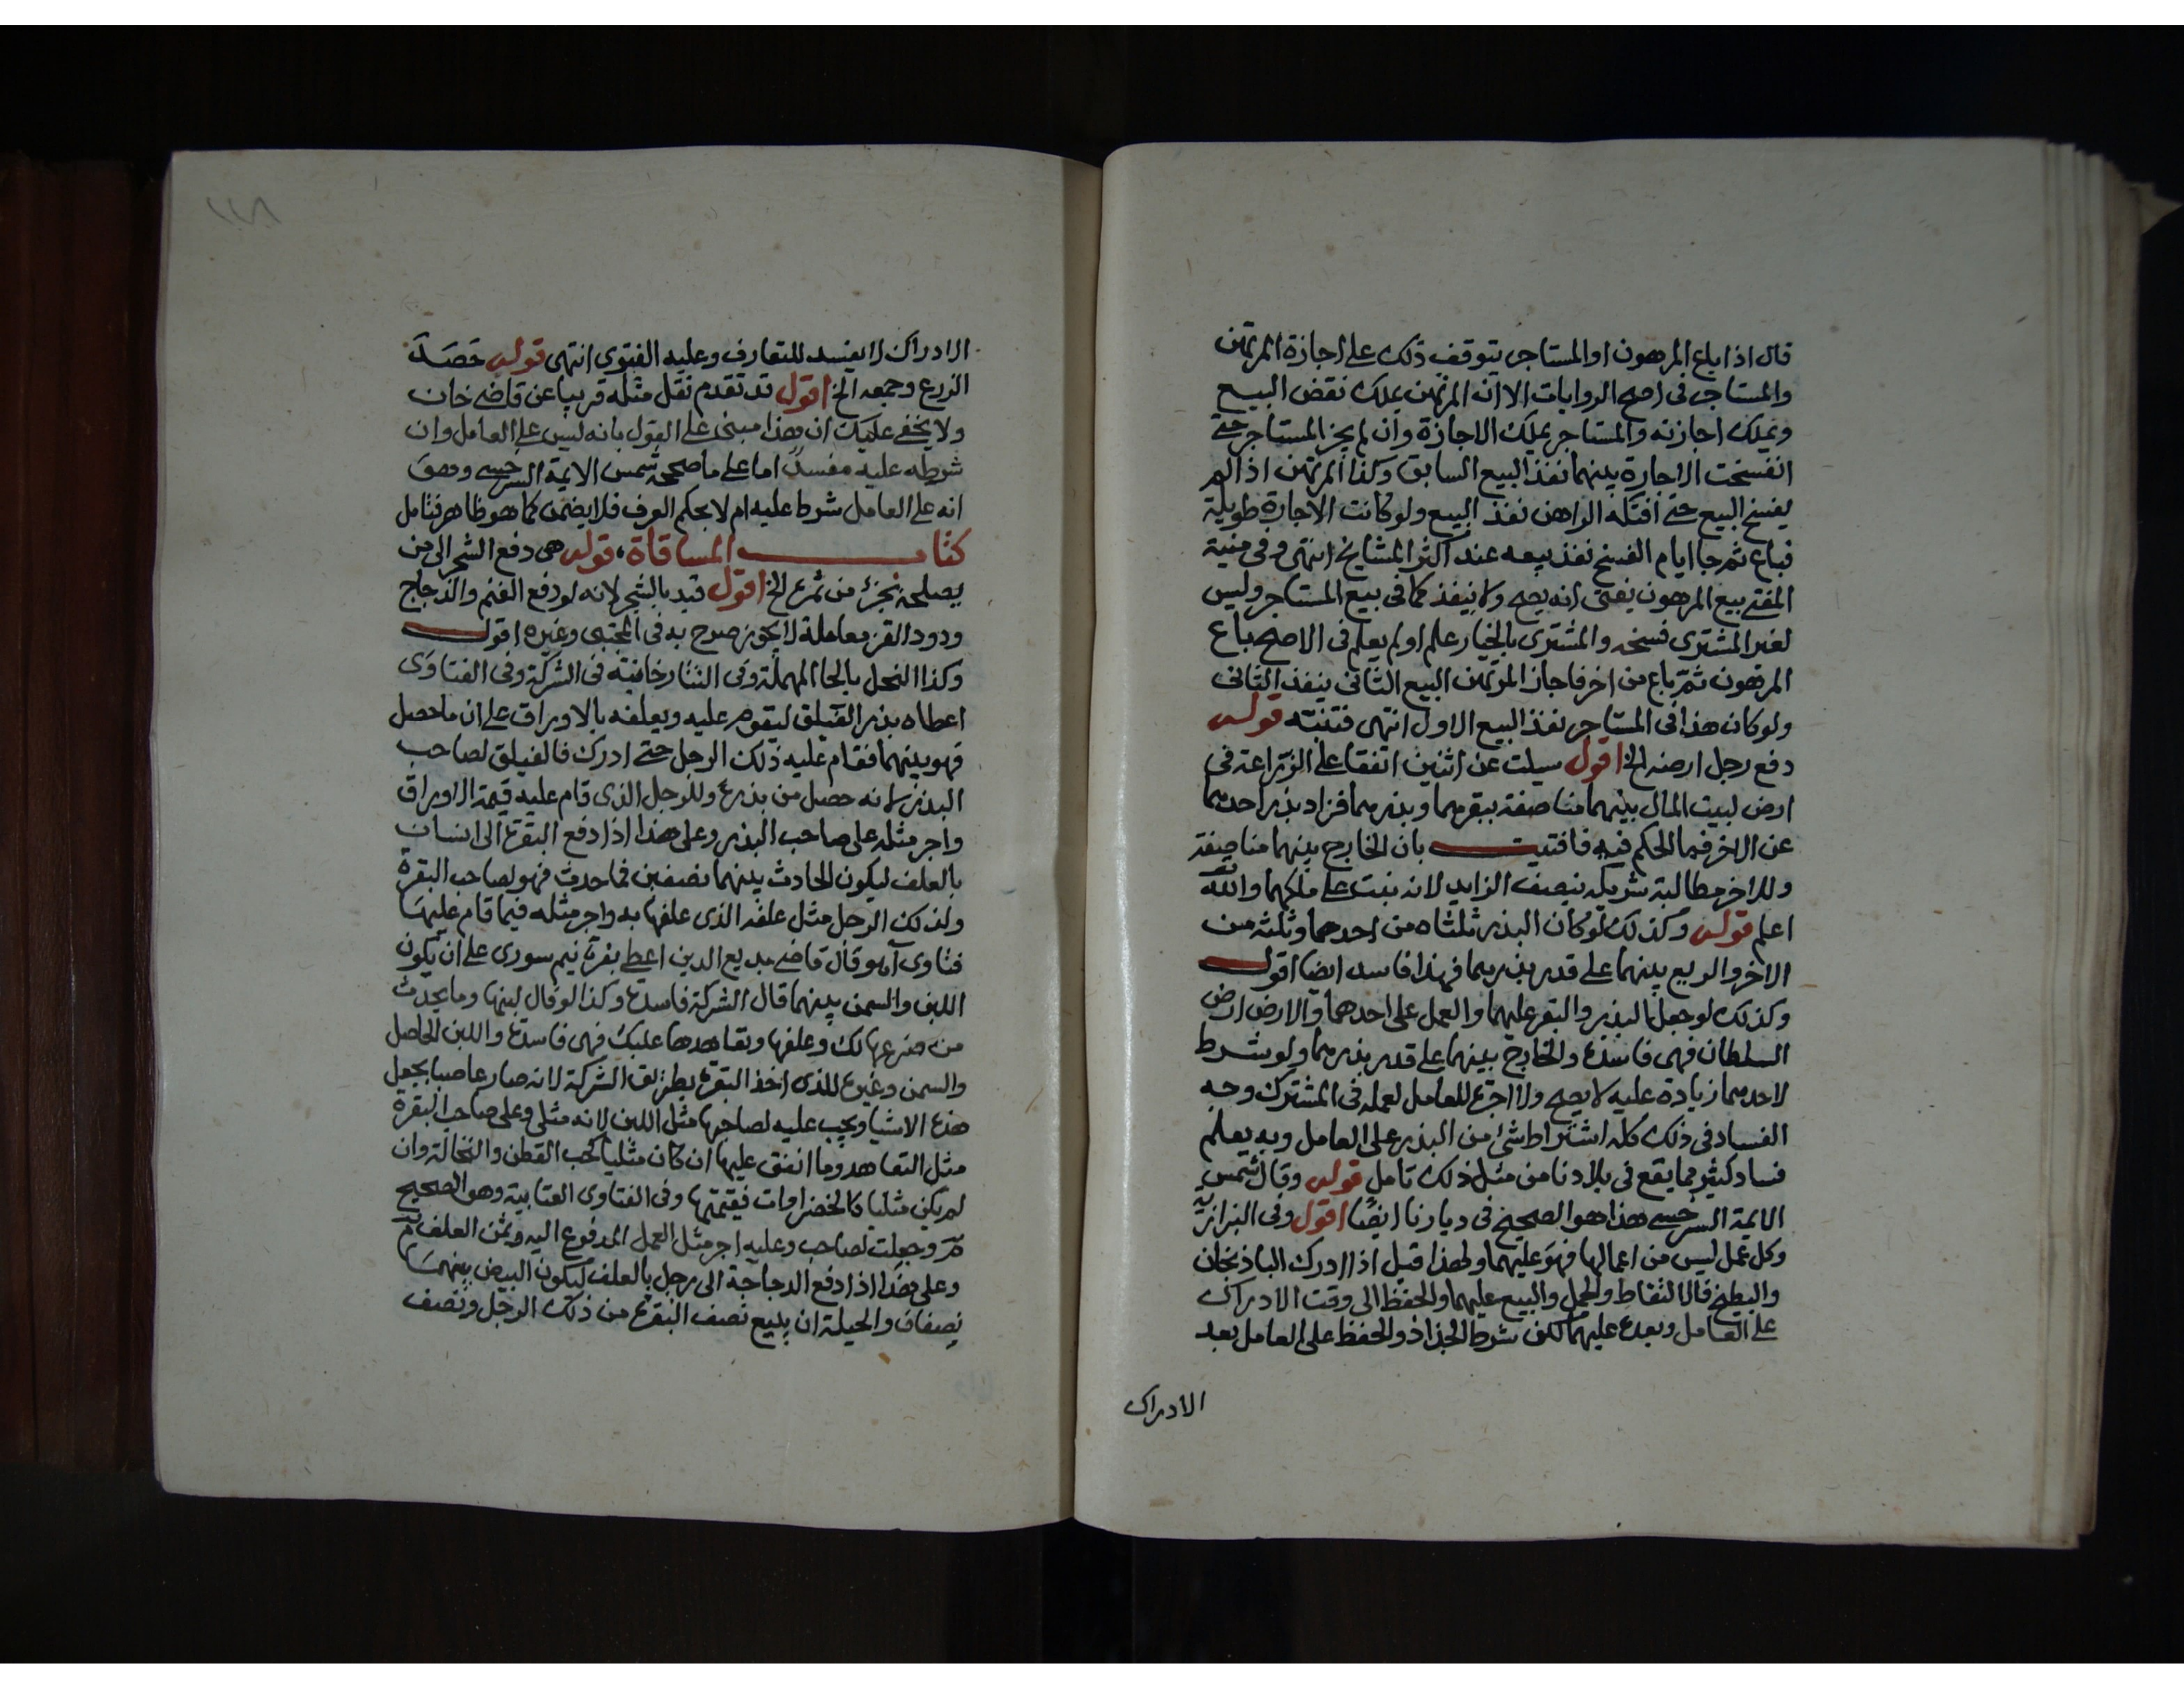 قال اذا باع المرهون او المستاجر يتوقف ذلك على اجازة المرتهن
والمستاجر فى اصح الروايات الا ان المرتهن يملك نقض البيع
ويملك اجازته والمستاجر يملك الاجازة وان لم يجز المستاجر حتى
انفسخت الاجارة بينهما نفذ البيع السابق وكذا المرتهن اذا لم
يفسخ البيع حتى افتكه الراهن نفذ البيع ولو كانت الاجارة طويلة
فباع ثم جا ايام الفسخ نفذ بيعه عند اكثر المشايخ انتهى وفى منية
المفتى بيع المرهون يفتى انه يصح ولا ينفذ كما فى بيع المستاجر وليس
لغير المشترى فسخه والمشترى بالخيار علم او لم يعلم فى الاصح باع
المرهون ثم باع من اخر فاجاز المرتهن البيع الثانى ينفذ الثانى
ولو كان هذا فى المستاجر نفذ البيع الاول انتهى فتنبه قوله
دفع رجل ارضه الخ اقول سيلت عن اثنين اتفقا على الزراعة فى
ارض لبيت المال بينهما مناصفة ببقرهما وبذرهما فزاد بذر احدهما
عن الاخر فما الحكم فيه فافتيت بان الخارج بينهما مناصفة
وللاخر مطالبة شريكه بنصف الزايد لانه نبت على ملكهما والله تعالى
اعلم قوله وكذلك لو كان البذر ثلثاه من احدهما وثلثه من
الاخر والريع بينهما على قدر بذرهما فهذا فاسد ايضا اقول
وكذلك لو جعل البذر والبقر عليهما والعمل على احدهما والارض ارض
السلطان فهى فاسدة والخارج بينهما على قدر بذرهما ولو شرط
لاحدهما زيادة عليه لا يصح ولا اجرة للعامل لعمله فى المشترك وجه
الفساد فى ذلك كله اشتراط شئ من البذر على العامل وبه يعلم
فساد كثير مما يقع فى بلادنا من مثل ذلك تامل قوله وقال شمس
الايمة السرخسى هذا هو الصحيح فى ديارنا ايضا اقول وفى البزازية
وكل عمل ليس من اعمالها فهو عليهما ولهذا قيل اذا ادرك الباذنجان
والبطيخ فالالتقاط والحمل والبيع عليهما والحفظ الى وقت الادراك
على العامل وبعده عليهما لكن شرط الجذاذ والحفظ على العامل بعد
الادراك
١١٨
الادراك لا يفسد للتعارف وعليه الفتوى انتهى قوله حصد
الزرع وجمعه الخ اقول قد تقدم نقل مثله قريبا عن قاضى خان
ولا يخفى عليك ان هذا مبنى على القول بانه ليس على العامل وان
شرطه عليه مفسد اما على ما صححه شمس الايمة السرخسى وهو
انه على العامل شرط عليه ام لا بحكم العرف فلا يضمن كما هو ظاهر فتامل
كتاب المساقاة، قوله هى دفع الشجر الى من
يصلحه بجزء من ثمره الخ اقول قيد بالشجر لانه لو دفع الغنم والدجاج
ودود القز معاملة لا يجوز صرح به فى المجتبى وغيره اقول
وكذا النحل بالحا المهملة وفى التتارخانية فى الشركة وفى الفتاوى
اعطاه بذر الفيلق ليقوم عليه ويعلفه بالاوراق على ان ما حصل
فهو بينهما فقام عليه ذلك الرجل حتى ادرك فالفيلق لصاحب
البذر لانه حصل من بذره وللرجل الذى قام عليه قيمة الاوراق
واجر مثله على صاحب البذر وعلى هذا اذا دفع البقرة الى انسان
بالعلف ليكون الحادث بينهما نصفين فما حدث فهو لصاحب البقرة
ولذلك الرجل مثل علفه الذى علفها به واجر مثله فيما قام عليها
فتاوى آهو قال قاضى بديع الدين اعطى بقرة نيم سورى على ان يكون
اللبن والسمن بينهما قال الشركة فاسدة وكذا لو قال لبنها وما يحدث
من ضرعها لك وعلفها وتعاهدها عليك فهى فاسدة واللبن الحاصل
والسمن وغيره للذى اخذ البقرة بطريق الشركة لانه صار غاصبا بجعل
هذه الاشيا ويجب عليه لصاحبها مثل اللبن لانه مثلى وعلى صاحب البقرة
مثل التعاهد وما انفق عليها ان كان مثليا كحب القطن والنخالة وان
لم يكن مثليا كالخضراوات فقيمتها وفى الفتاوى العتابية وهو الصحيح
وجعلت لصاحب وعليه اجر مثل العمل المدفوع اليه وثمن العلف
وعلى هذا اذا دفع الدجاجة الى رجل بالعلف ليكون البيض بينهما
نصفان والحيلة ان يبيع نصف البقرة من ذلك الرجل ونصف